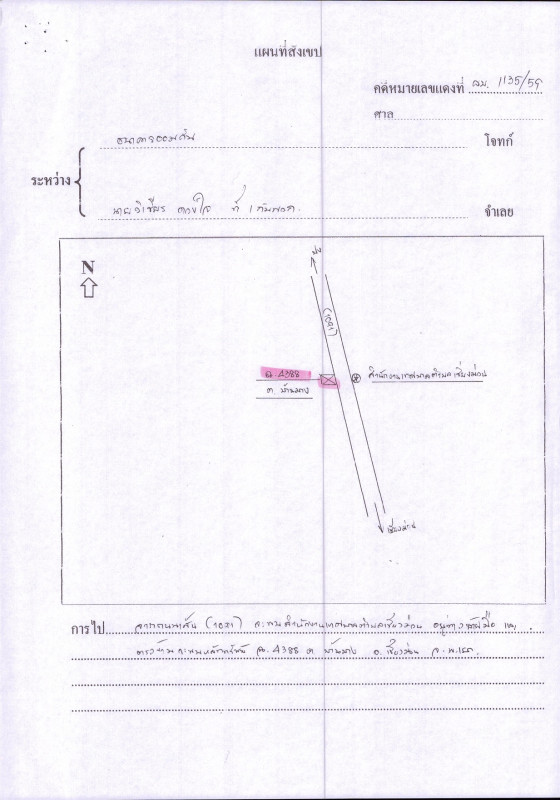 แผนที่สังเขป
คดีหมายเลขแดงที่ ผบ. 1135/59
ศาล
ธนาคารออมสิน โจทก์
ระหว่าง
นายวิเชียร ดวงใจ ที่ 1 กับพวก จำเลย
N
ปง
(1091)
ฉ. 4388
ต. บ้านมาง
สำนักงานเทศบาลตำบลเชียงม่วน
เชียงม่วน
การไป จากถนนสาย (1091) จะพบสำนักงานเทศบาลตำบลเชียงม่วน อยู่ทางซ้ายมือ
ตรงข้ามจะพบหลักทรัพย์ ฉ. 4388 ต. บ้านมาง อ. เชียงม่วน จ. พะเยา